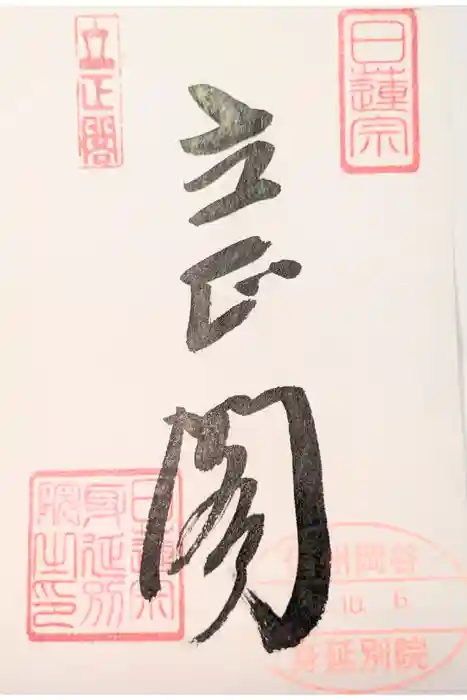 日蓮宗
立正閣
立正閣
日蓮宗
身延別
院之印
州岡谷
10. 6
身延別院